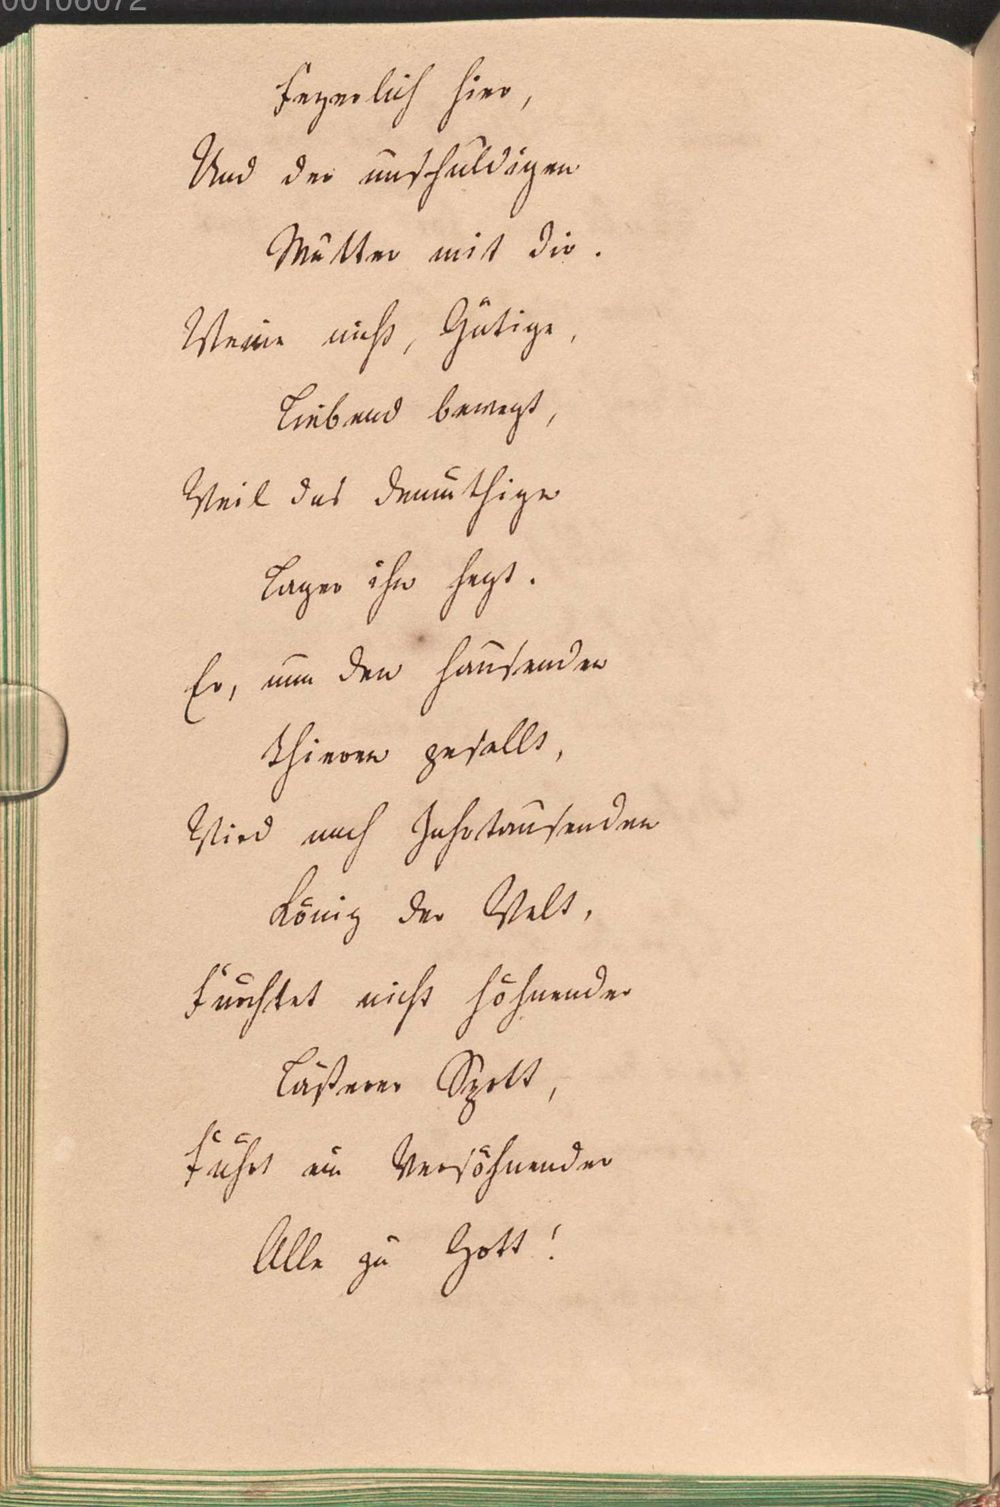 00106072
Feyerlich hier,
Und der unschuldigen
Mutter mit dir.
Weine nicht, Gütige,
Liebend bewegt,
Weil das demüthige
Lager ihn hegt.
Er, nun den hausenden
Thieren gesellt,
Wird nach Jahrtausenden
König der Welt,
Fürchtet nicht höhnender
Lästerer Spott,
Führt ein Versöhnender
Alle zu Gott!